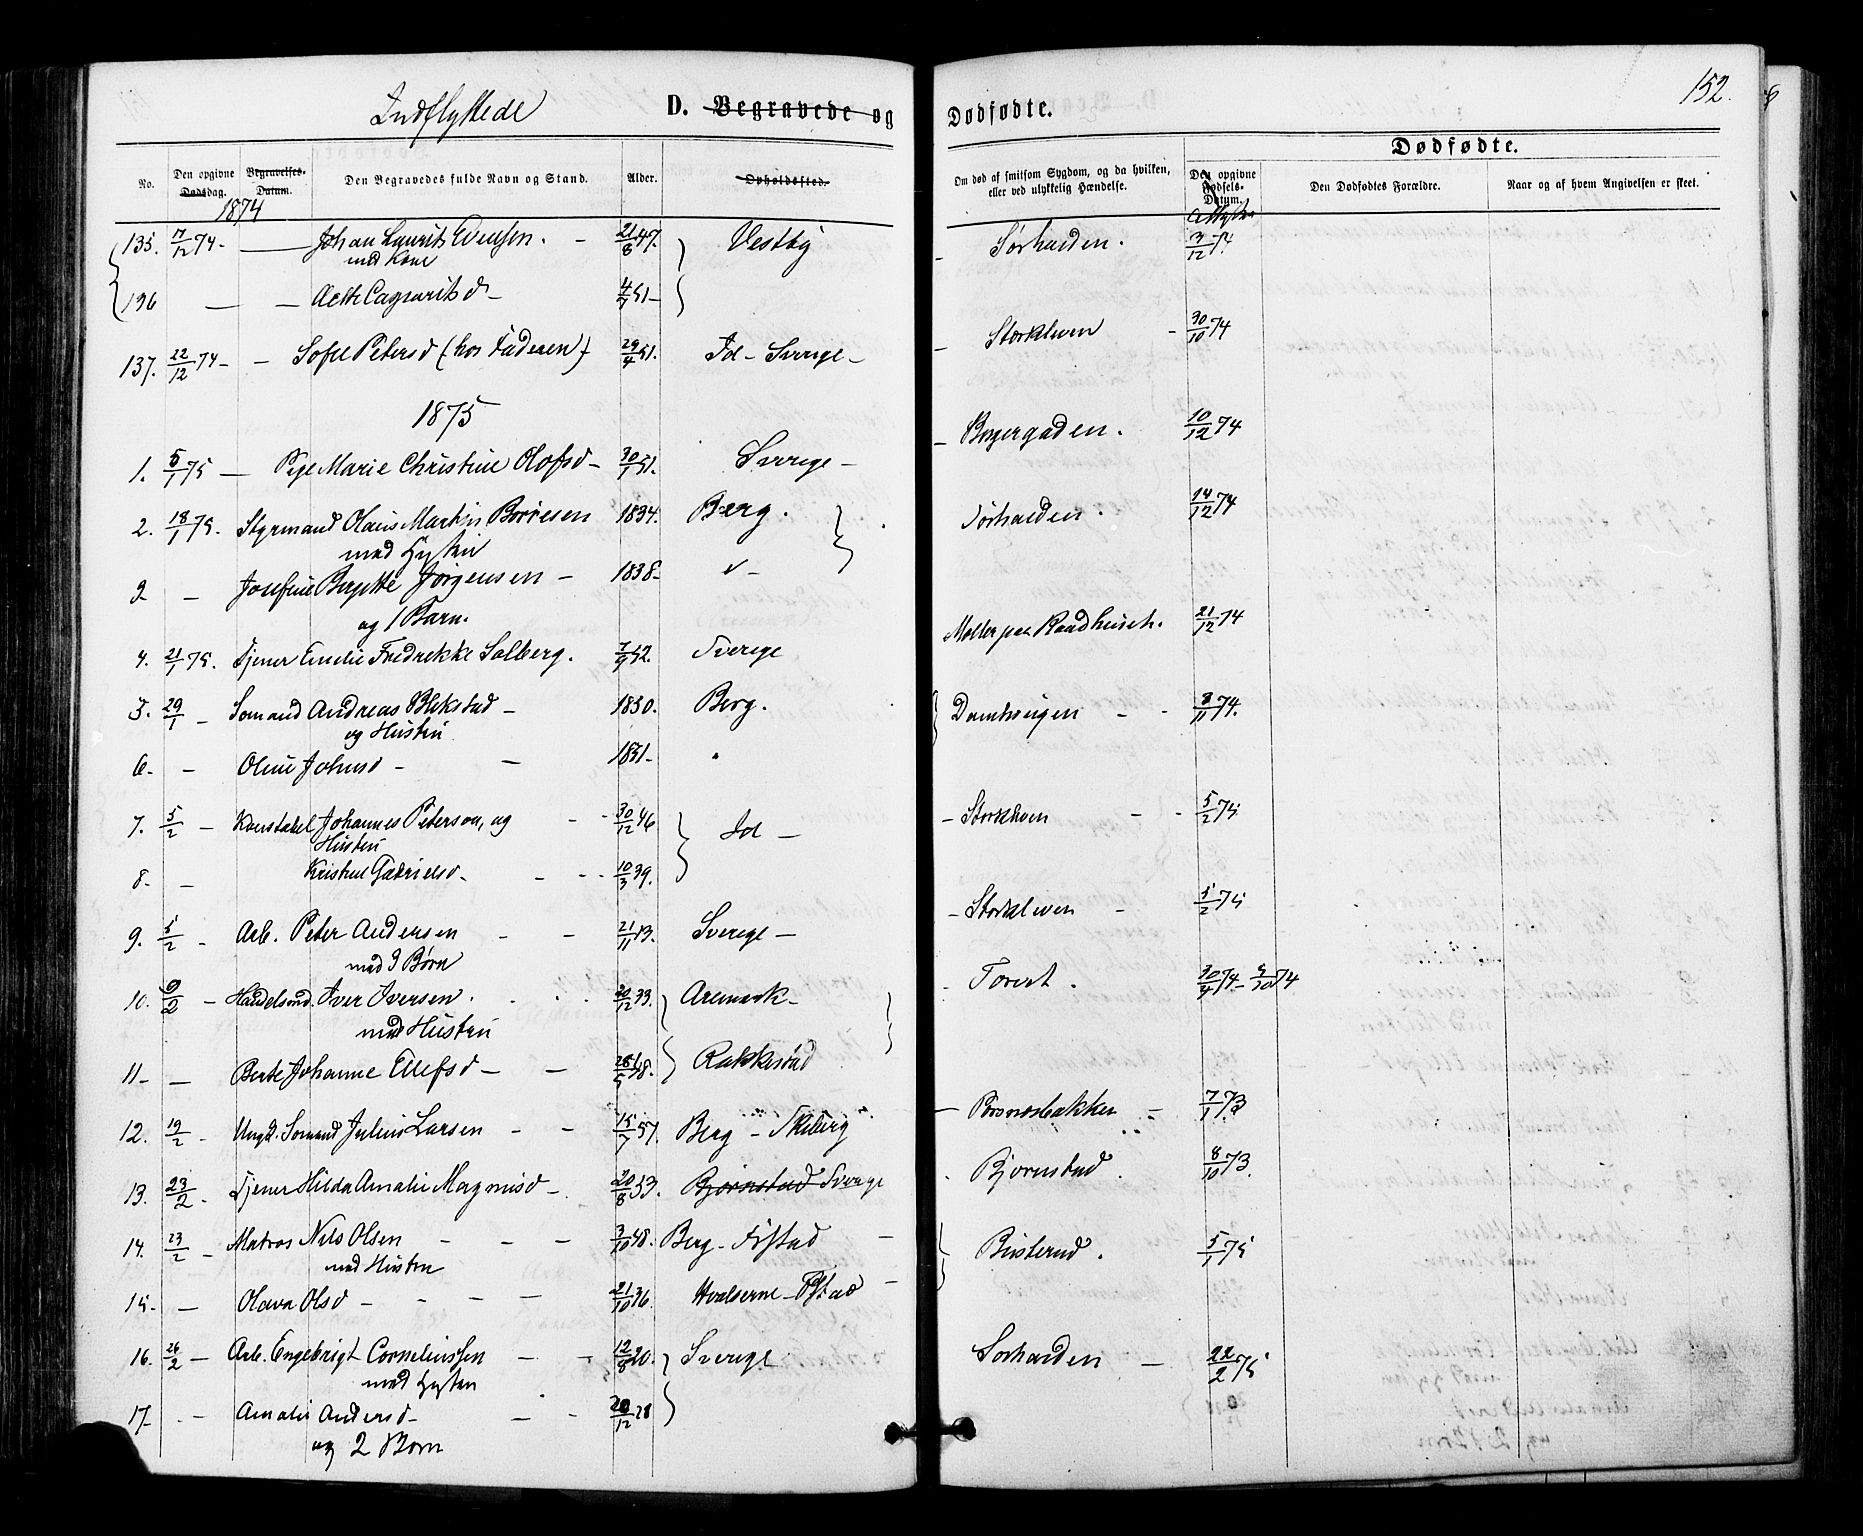 Indflyttede D. Begravede og Dødfødte. 152.
Dødfødte.
No. Den opgivne Dødsdag. Begravelses-Datum. Den Begravedes fulde Navn og Stand. Alder. Opholdssted. Om død af smitsom Sygdom, og da hvilken, eller ved ulykkelig Hændelse. Den opgivne Fødsels-Datum. Den Dødfødtes Forældre. Naar og af hvem Angivelsen er skeet.
1874
135. 17/12 74 - Johan Laurits Evensen. - 21/8 47. Vestby - Sørhalden. 3/12 74
med Kone
136 - - 4/7 51 -
137. 22/12 74 - - Sofie Petersd (hos Faderen) 29/4 51. Id - Sverige - - Storkleven - 30/10 74
1875
1. 5/1 75 - Pige Marie Christine Olofsd - 30/1 51. Sverige - - Borgergaden. 10/12 74
2. 18/1 75. Styrmand Olaus Martin Borresen 1834. Berg. Sørhalden. 14/12 74
med Hustru
2 - Josefine Jörgensen - 1838 - -
og 1 Barn.
4. 21/1 75. Tjener Emelie Fredrikke Solberg. 7/9 52. Sverige Møller paa Raadhuset. 21/12 74
5. 29/1 - Sømand Andreas Blekstad - 1830. Berg. - - 8/11 74.
og Hustru
6 - - Oline Johnsd - - 1831 - "
7. 5/2 - Konstabel Johannes Peterson, og - - 30/12 46 Id - - Storkleven - - 5/2 75
Hustru
8 - - Gabrielsd. - - - 10/3 39.
9. 5/2 - Arb. Peter Andersen - - 21/11 13. Sverige - - Storkleven - 5/2 75
med 3 Børn
10. 9/2 - Handelsmd. Iver Iversen. 20/12 33. Aremark - - Torvet. 30/9 74 - 5/10 74
med Hustru
11 - - Berte Johanne Ellefsd - - 48. Rakkestad
12. 19/2 - Ungk. Sømand Julius Larsen - - 15/7 57. Berg - Skeberg - - 7/1 73
13. 23/2 - Tjener Hilda Amalie Magnusd - 20/8 53. Bjørnstad Sverige Bjørnstad. 8/10 73
14. 23/2 - Matros Nils Olsen - - - 3/10 48. Berg - - Busterud. 5/1 75
med Hustru
15 - - Olava Olsd - - - - 21/10 36. -
16. 26/2 - Arb. Engebrigt Corneliussen - - 12/8 20. Sverige Sørhalden - 22/2 75
med Hustru
17 - - - Amalie Andersd - - - 20/12 28
og 2 Børn